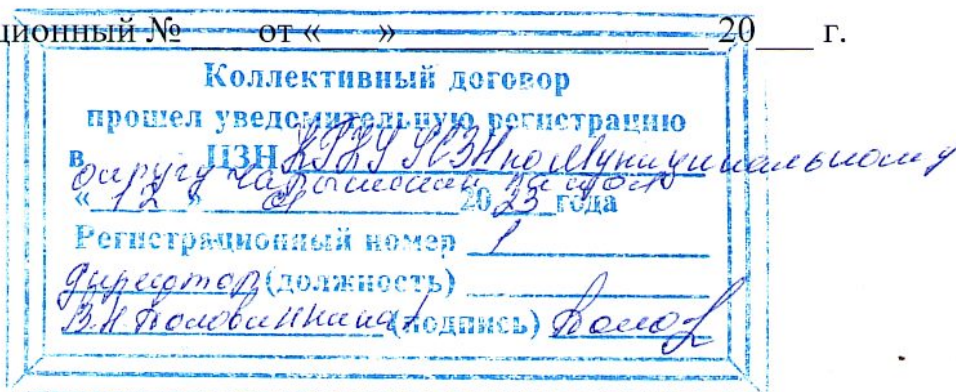 ционный № ____ от «____»____________________ 20____ г.
Коллективный договор
прошел уведомительную регистрацию
в ЦЗН КГКУ УСЗН по Муниципальному
округу Чарышский район
« 12 » 01 20 23 года
Регистрационный номер 1
директор (должность)
В.Н. (подпись)